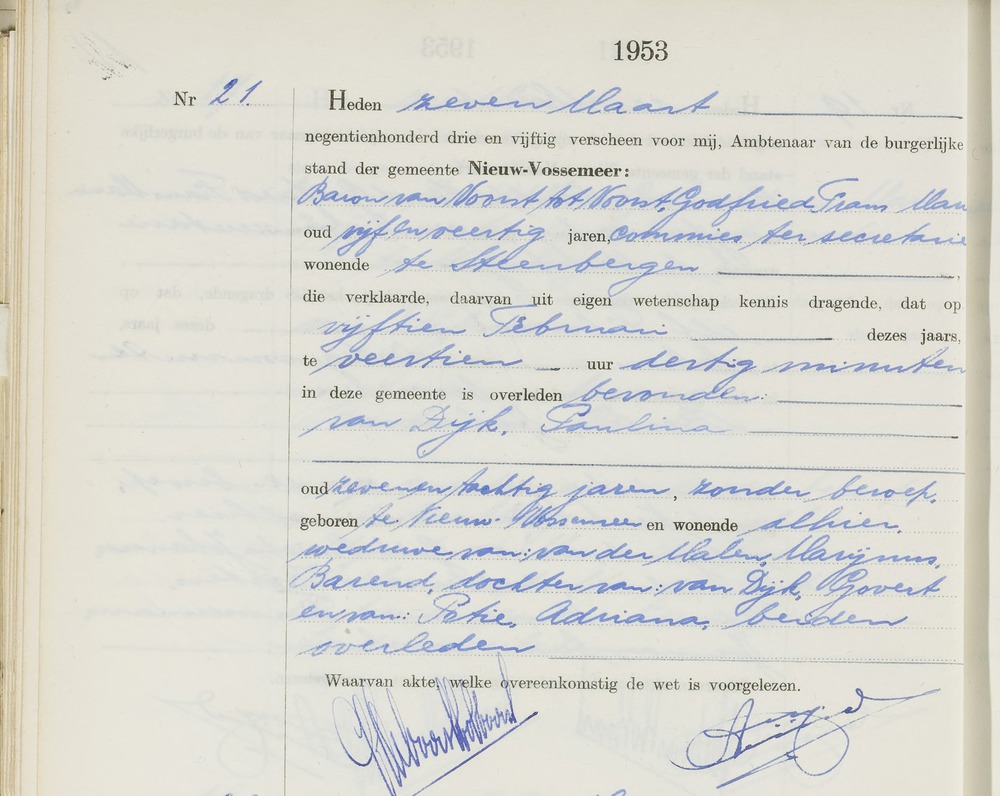 1953
Nr 21.
Heden zeven Maart
negentienhonderd drie en vijftig verscheen voor mij, Ambtenaar van de burgerlijke
stand der gemeente Nieuw-Vossemeer:
Baron van Voorst tot Voorst, Godfried Frans Mari
oud vijf en veertig jaren, commies ter secretarie
wonende te Steenbergen
die verklaarde, daarvan uit eigen wetenschap kennis dragende, dat op
vijftien Februari dezes jaars,
te veertien uur dertig minuten
in deze gemeente is overleden bevonden:
van Dijk, Paulina
oud zeven en tachtig jaren, zonder beroep,
geboren te Nieuw-Vossemeer en wonende alhier,
weduwe van: van der Malen, Marijnus,
Barend, dochter van: van Dijk, Govert
en van: Adriana, beiden
overleden
Waarvan akte, welke overeenkomstig de wet is voorgelezen.